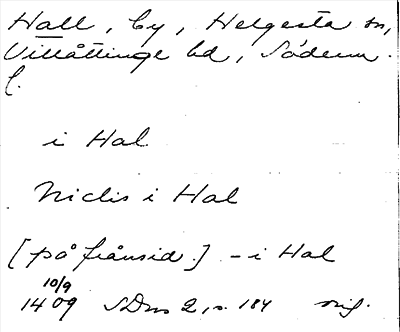 Hall, by, Helgesta sn,
Villåttinge hd, Söderm.
l.
i Hal
Niclis i Hal
[på frånsid.] - i Hal
10/9
1409 SDns 2, s. 184 orig.